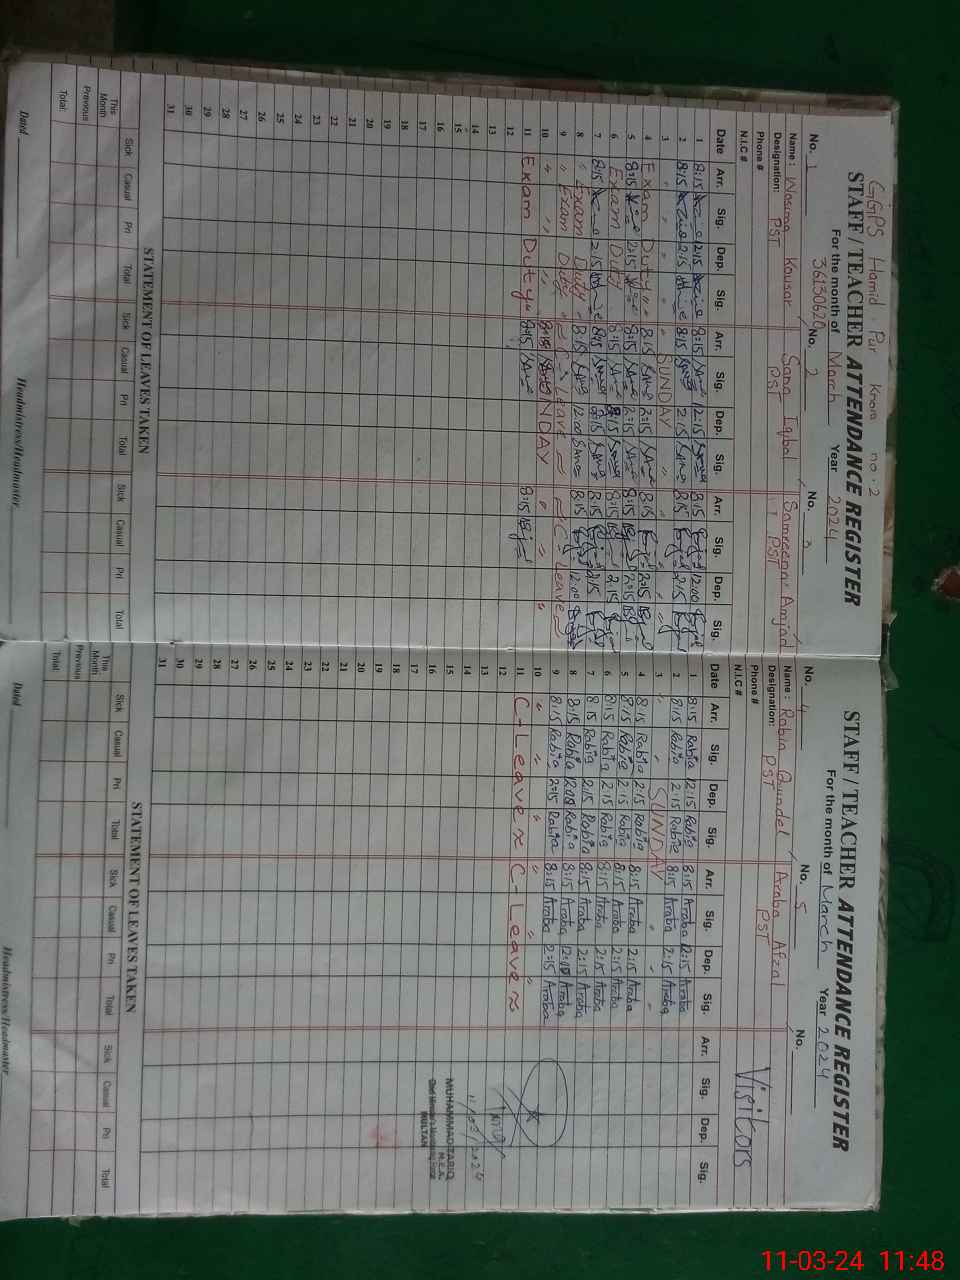 GGPS Hamid Pur Knora no. 2
STAFF / TEACHER ATTENDANCE REGISTER
36130620
For the month of March Year 2024
No. 1 No. 2 No. 3
Name: Wasima Kousar Sana Iqbal Samreena Amjad
Designation: PST PST PST
Phone #
N.I.C #
Date Arr. Sig. Dep. Sig. Arr. Sig. Dep. Sig. Arr. Sig. Dep. Sig.
1 8:15 2:15 8:15 12:15 8:15 12:00
2 8:15 2:15 8:15 2:15 8:15 2:15
3 " " " SUNDAY " " "
4 Exam Duty 8:15 2:15 8:15 2:15
5 8:15 2:15 8:15 2:15 8:15 2:15
6 Exam Duty 8:15 8:15 2:15
7 8:15 2:15 8:15 8:15 2:15
8 " Exam Duty " 8:15 12:00 8:15 12:00
9 " Exam Duty C-Leave C-Leave
10 " " " SUNDAY " " "
11 Exam Duty 8:15 8:15
12
13
14
15
16
17
18
19
20
21
22
23
24
25
26
27
28
29
30
31
STATEMENT OF LEAVES TAKEN
Sick Casual Pri Total Sick Casual Pri Total Sick Casual Pri Total
This Month
Previous
Total:
Dated Headmistress/Headmaster
STAFF / TEACHER ATTENDANCE REGISTER
For the month of March Year 2024
No. 4 No. 5 No.
Name: Rabia Qundel Araba Afzal
Designation: PST PST
Phone #
N.I.C #
Visitors
Date Arr. Sig. Dep. Sig. Arr. Sig. Dep. Sig. Arr. Sig. Dep. Sig.
1 8:15 Rabia 12:15 Rabia 8:15 Araba 12:15 Araba
2 8:15 Rabia 2:15 Rabia 8:15 Araba 2:15 Araba
3 " " SUNDAY " " "
4 8:15 Rabia 2:15 Rabia 8:15 Araba 2:15 Araba
5 8:15 Rabia 2:15 Rabia 8:15 Araba 2:15 Araba
6 8:15 Rabia 2:15 Rabia 8:15 Araba 2:15 Araba
7 8:15 Rabia 2:15 Rabia 8:15 Araba 2:15 Araba
8 8:15 Rabia 12:00 Rabia 8:15 Araba 12:00 Araba
9 8:15 Rabia 2:15 Rabia 8:15 Araba 2:15 Araba
10 " " " " " "
11 C-Leave C-Leave
12
13
14
15
16
17
18
19
20
21
22
23
24
25
26
27
28
29
30
31
11/03/2024
MUHAMMAD TARIQ
M.E.A.
Chief Minister's Monitoring Force
MULTAN
STATEMENT OF LEAVES TAKEN
Sick Casual Pri Total Sick Casual Pri Total Sick Casual Pri Total
This Month
Previous
Total
Dated Headmistress/Headmaster
11-03-24 11:48